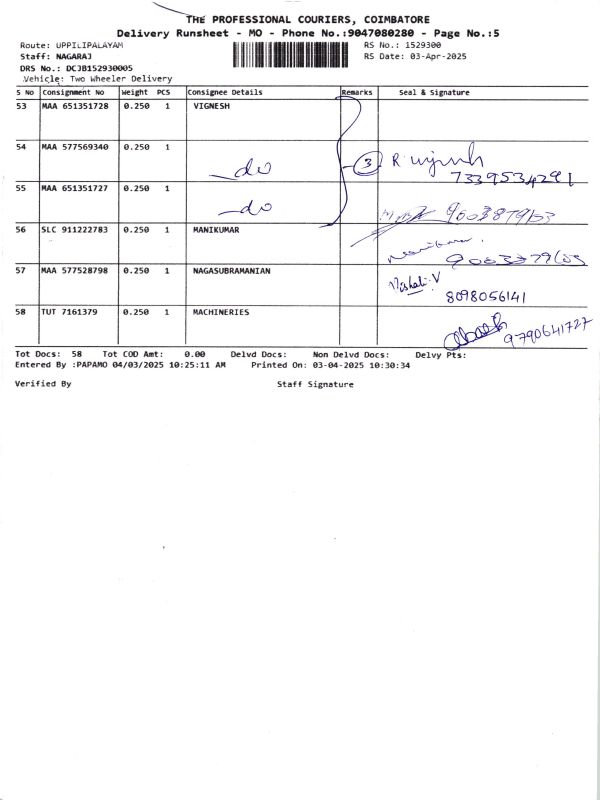 THE PROFESSIONAL COURIERS, COIMBATORE
Delivery Runsheet - MO - Phone No.:9047080280 - Page No.:5
Route: UPPILIPALAYAM RS No.: 1529300
Staff: NAGARAJ RS Date: 03-Apr-2025
DRS No.: DCJB152930005
Vehicle: Two Wheeler Delivery
S No Consignment No Weight PCS Consignee Details Remarks Seal & Signature
53 MAA 651351728 0.250 1 VIGNESH
54 MAA 577569340 0.250 1
do 3 R.
7339534291
55 MAA 651351727 0.250 1
do
56 SLC 911222783 0.250 1 MANIKUMAR
57 MAA 577528798 0.250 1 NAGASUBRAMANIAN
Vishali.V
8098056141
58 TUT 7161379 0.250 1 MACHINERIES
9790641727
Tot Docs: 58 Tot COD Amt: 0.00 Delvd Docs: Non Delvd Docs: Delvy Pts:
Entered By :PAPAMO 04/03/2025 10:25:11 AM Printed On: 03-04-2025 10:30:34
Verified By Staff Signature